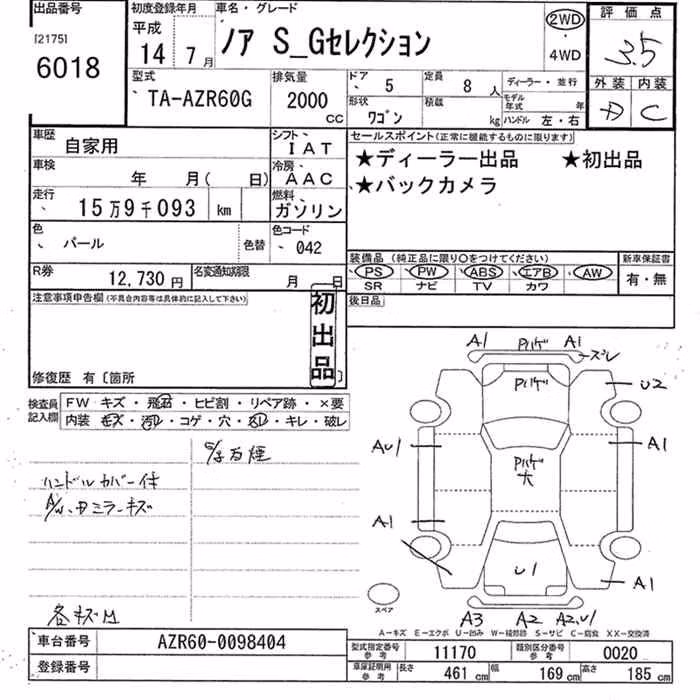 出品番号
[2175]
6018
初度登録年月
平成
14 7月
車名・グレード
ノア S_Gセレクション
2WD
・
4WD
評価点
3.5
外装 内装
D C
型式
TA-AZR60G
排気量
2000
CC
ドア 5
定員 8人
形状 ワゴン
積載 kg
ディーラー・並行
モデル年式 年
ハンドル 左・右
車歴 自家用
シフト IAT
車検 年 月( 日)
冷房 AAC
走行 15万9千093 km
燃料 ガソリン
色 パール 色替
色コード 042
R券 12,730円
名変通知期限 月 日
セールスポイント(正常に機能するものに限ります)
★ディーラー出品 ★初出品
★バックカメラ
装備品(純正品に限り○をつけてください)
新車保証書
PS PW ABS エアB AW
SR ナビ TV カワ
有・無
後日品
注意事項申告欄(不具合内容等は具体的に記入して下さい)
初出品
修復歴 有〔箇所 〕
検査員記入欄
FW キズ・飛石・ヒビ割・リペア跡・×要
内装 キズ・汚れ・コゲ・穴・スレ・キレ・破レ
ハンドルカバー付
A/W、ミラーキズ
各キズ
A1 Pハゲ A1
ズレ
Pハゲ
U2
AU1
A1
Pハゲ
大
A1
U1
A1
スペア
A3 A2 A2,U1
A−キズ E−エクボ U−凹み W−補修跡 S−サビ C−腐食 XX−交換済
車台番号 AZR60-0098404
登録番号
型式指定番号 参考 11170
類別区分番号 参考 0020
車庫証明用 参考 長さ 461cm 幅 169cm 高さ 185cm